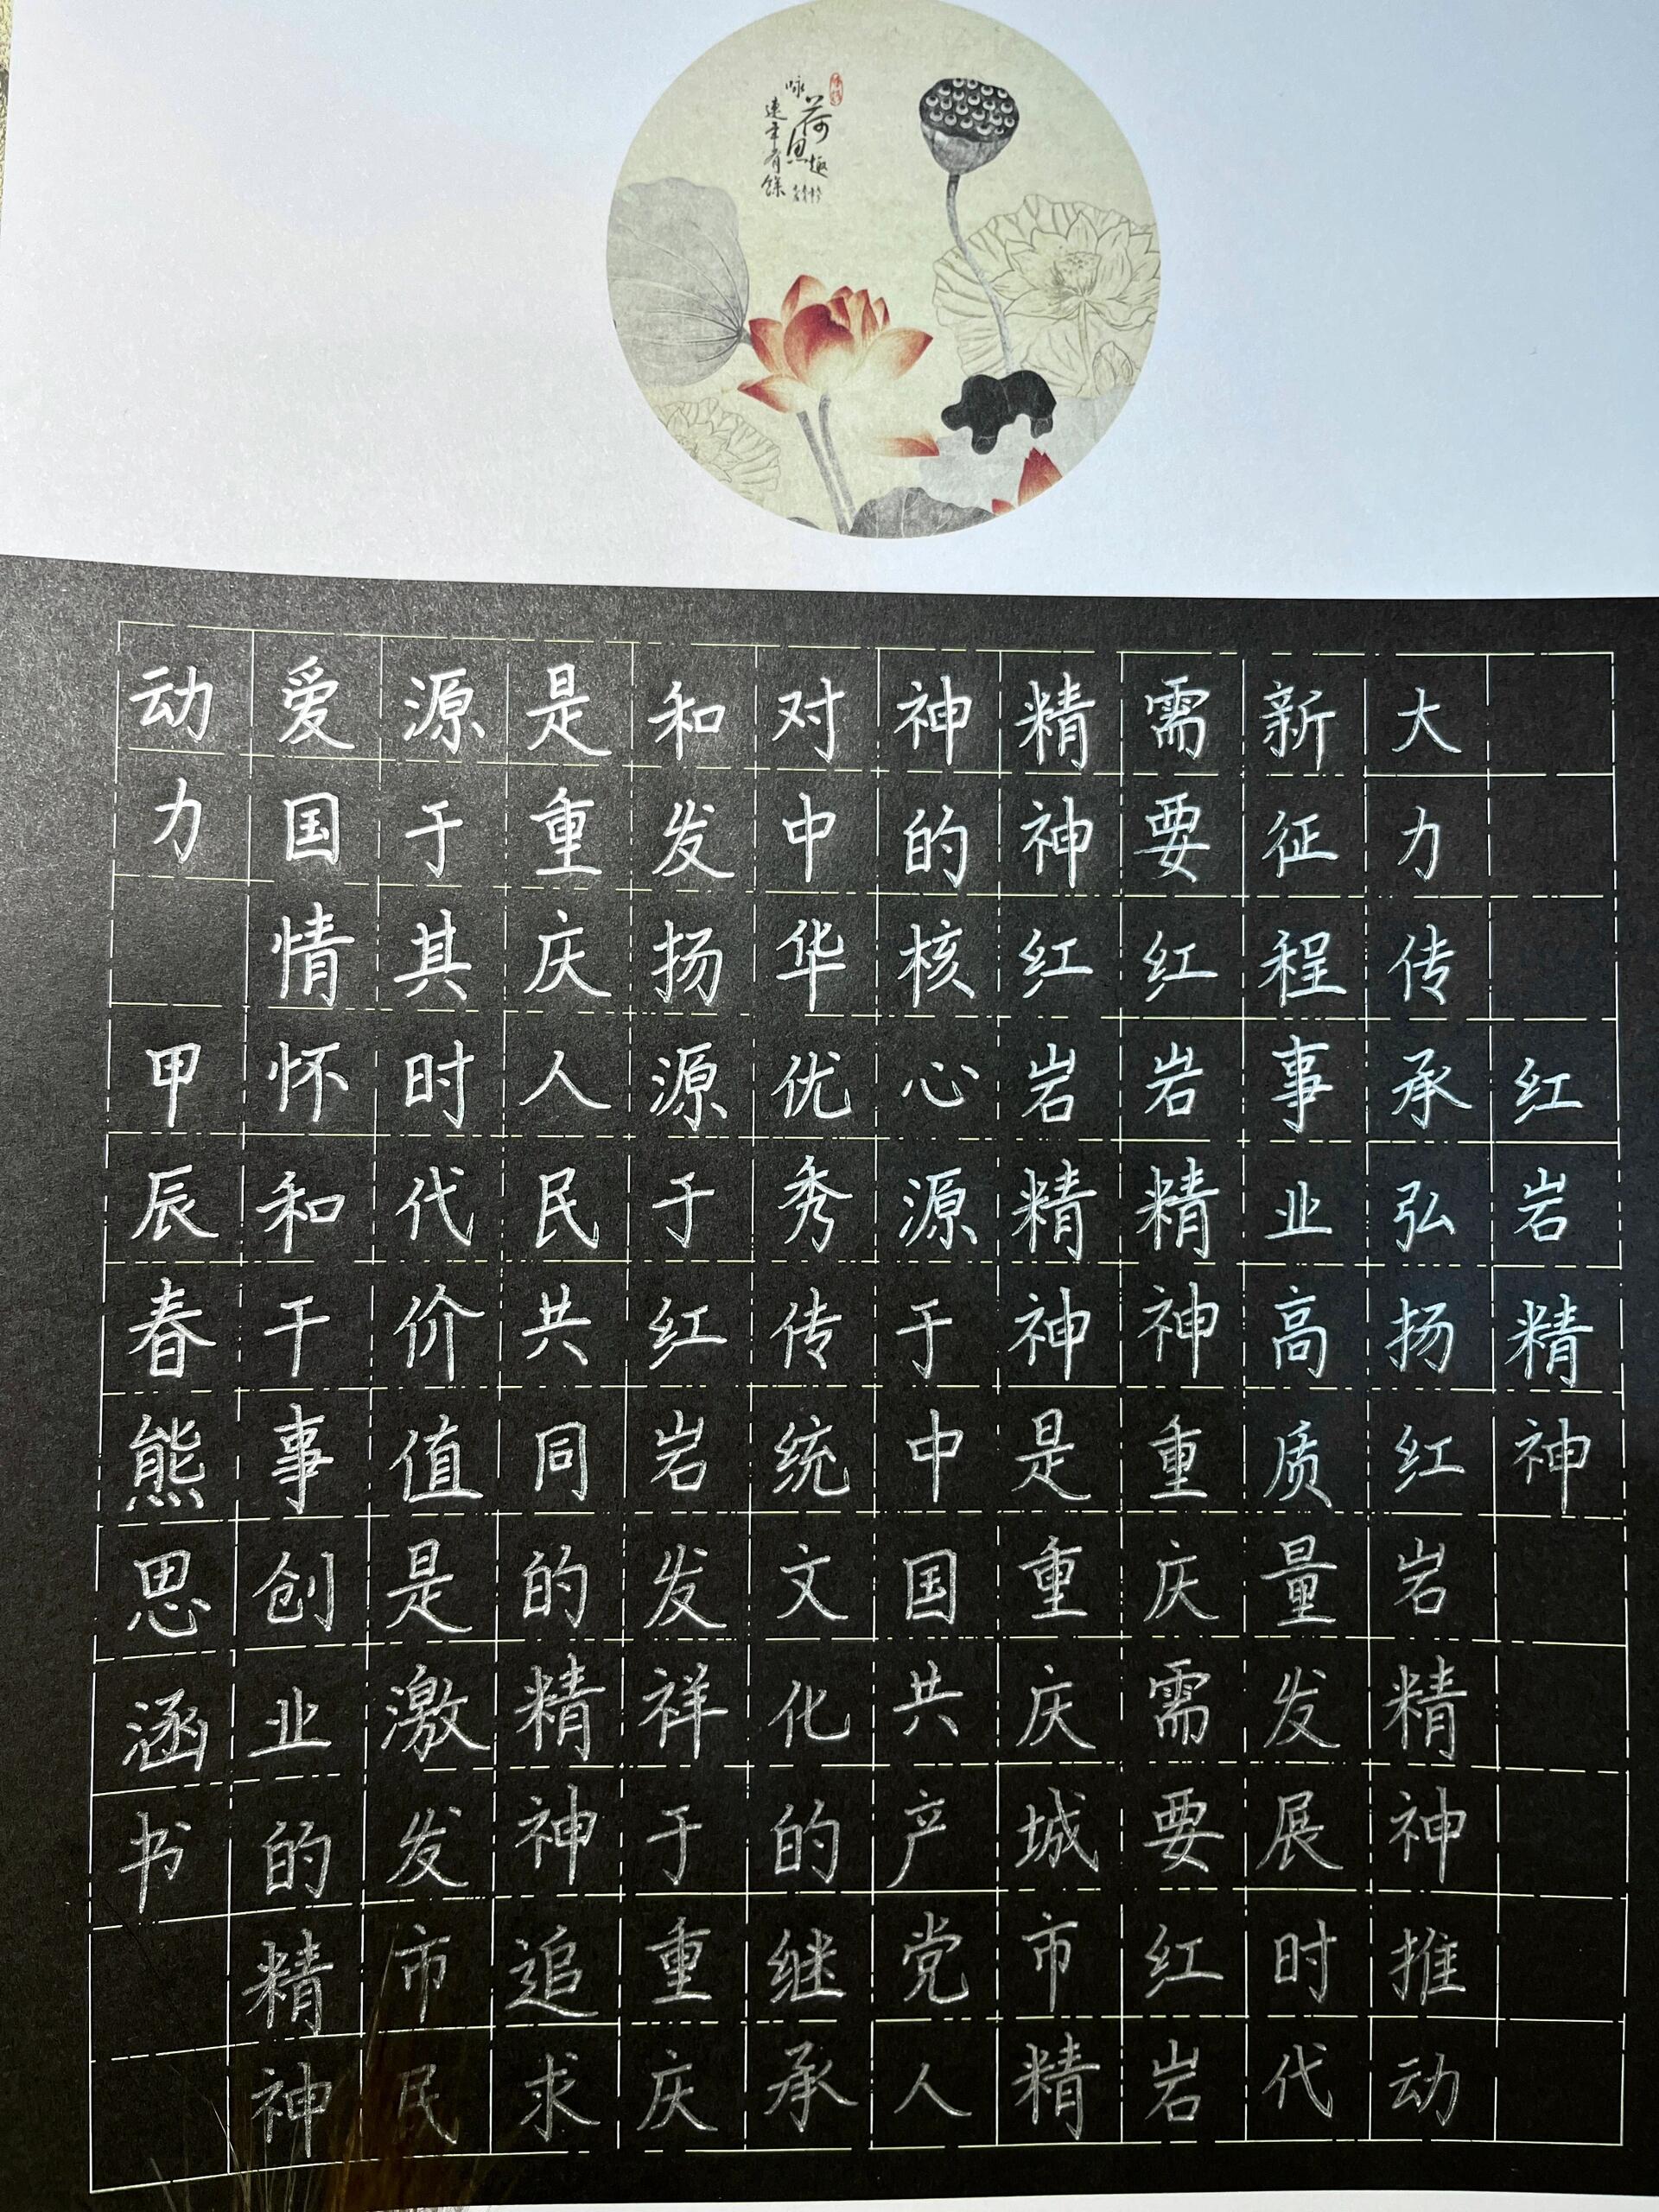 咏荷趣
連年有餘
红岩精神
大力传承弘扬红岩精神推动
新征程事业高质量发展时代
需要红岩精神重庆需要红岩
精神红岩精神是重庆城市精
神的核心源于中国共产党人
对中华优秀传统文化的继承
和发扬源于红岩发祥于重庆
是重庆人民共同的精神追求
源于其时代价值是激发市民
爱国情怀和干事创业的精神
动力 甲辰春熊思涵书